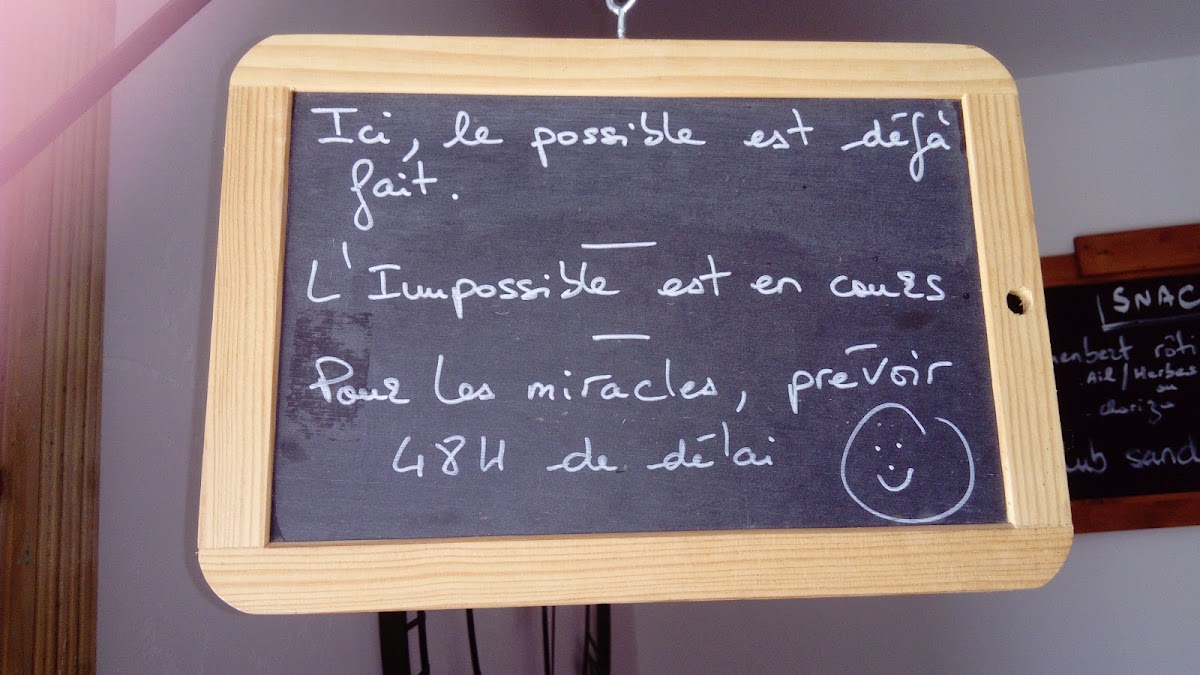 Ici, le possible est déjà
fait.
L'Impossible est en cours
Pour les miracles, prévoir
48H de délai
SNAC
rôti
Ail/Herbes
ou
chorizo
sand